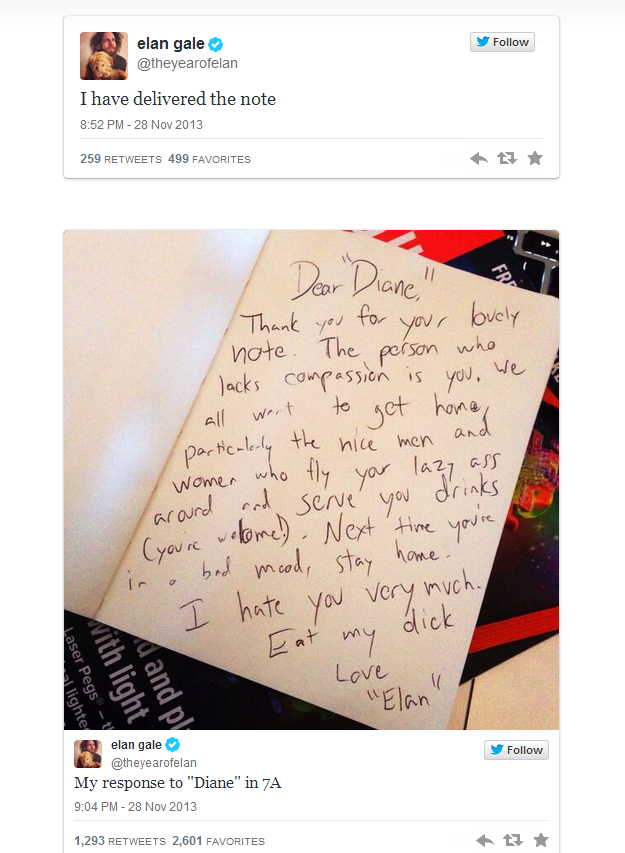 elan gale
@theyearofelan
Follow
I have delivered the note
8:52 PM - 28 Nov 2013
259 RETWEETS 499 FAVORITES
Dear "Diane,"
Thank you for your lovely
note. The person who
lacks compassion is you. We
all want to get home,
particularly the nice men and
women who fly your lazy ass
around and serve you drinks
(you're welcome!). Next time you're
in a bad mood, stay home.
I hate you very much.
Eat my dick
Love
"Elan"
FR
d and pl
with light
Laser Pegs® – t
al lighte
elan gale
@theyearofelan
Follow
My response to "Diane" in 7A
9:04 PM - 28 Nov 2013
1,293 RETWEETS 2,601 FAVORITES